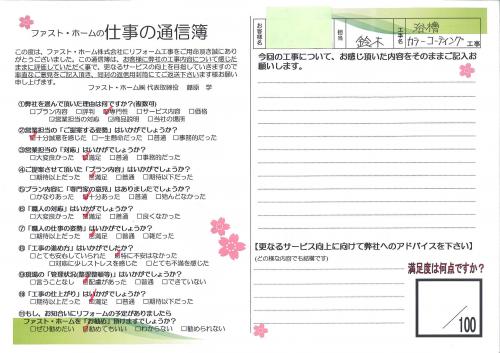 ファスト・ホームの仕事の通信簿
この度は、ファスト・ホーム株式会社にリフォーム工事をご用命頂き誠にあり
がとうございました。この通信簿は、お客様に弊社の工事内容について感じた
ままに評価していただく事で、更なるサービスの向上を目指していきますので
率直なご意見をご記入頂き、同封の返信用封筒にてご返送下さいます様お願い
申し上げます。
ファスト・ホーム㈱ 代表取締役
①弊社を選んで頂いた理由は何ですか?(複数可)
□プラン内容 □評判 □専門性 □サービス内容 □価格
□営業対応 □商品説明 □当社の場所
②営業担当の「ご提案する姿勢」はいかがでしょうか?
□十分誠意を感じた □一生懸命だった □普通 □事務的だった
③営業担当の「対応」はいかがでしょうか?
□大変良かった □満足 □普通 □事務的だった
④ご提案させて頂いた「プラン内容」はいかがでしょうか?
□期待以上だった □満足 □普通 □期待以下だった
⑤プラン内容に「専門家の意見」はありましたでしょうか?
□かなりあった □十分あった □普通 □殆どなかった
⑥「職人の対応」はいかがでしょうか?
□大変良かった □満足 □普通 □良くなかった
⑦「職人の仕事の姿勢」はいかがでしょうか?
□期待以上だった □満足 □普通 □雑だった
⑧「工事の進め方」はいかがでしたか?
□とても安心していられた □特に不安はなかった
□対応に少しストレスを感じた □とても不満を感じた
⑨現場の「管理状況(整理整頓等)」はいかがでしょうか?
□言うことなし □配慮があった □普通 □できていない
⑩「工事の仕上がり」はいかがでしょうか?
□期待以上だった □満足 □普通 □期待以下だった
⑪もし、お知合いにリフォームの予定がありましたら
ファスト・ホームを「お勧め」頂けますでしょうか?
□ぜひ勧めたい □勧めてもいい □わからない □勧められない
お客様名
担当
鈴木
工事名
浴槽
カラーコーティング工事
今回の工事について、お感じ頂いた内容をそのままご記入お
願いします。
【更なるサービス向上に向けて弊社へのアドバイスを下さい】
(どの様な内容でも結構です)
満足度は何点ですか?
/100